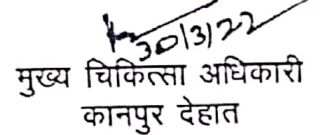 30/3/22
मुख्य चिकित्सा अधिकारी
कानपुर देहात